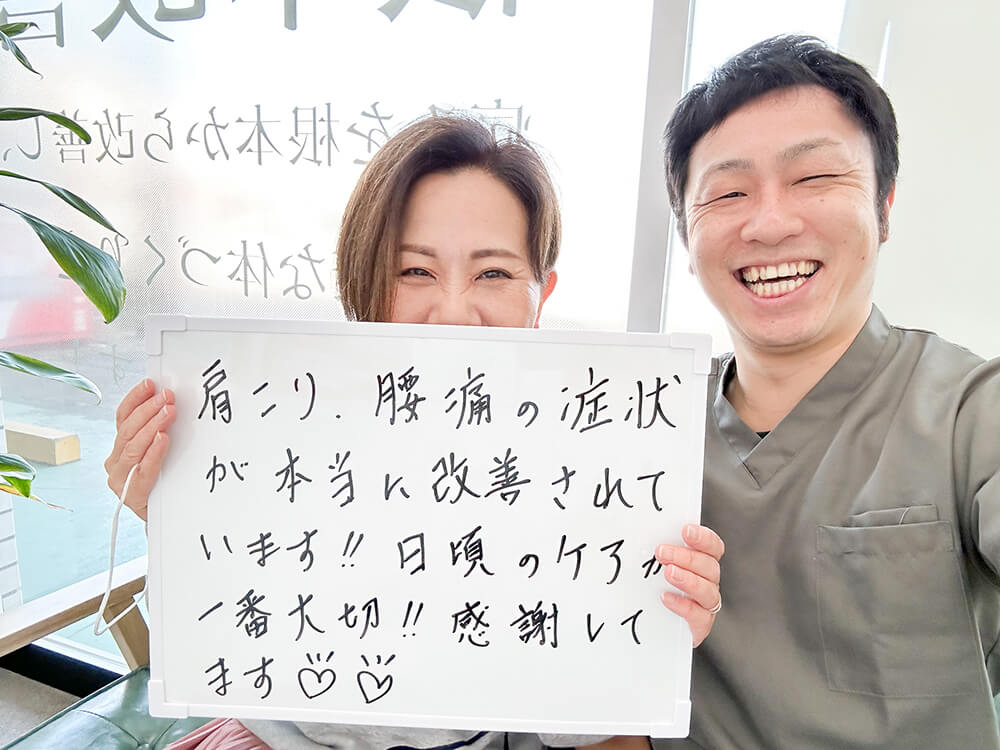 を根本から改善し、
な体づく
肩こり、腰痛の症状
が本当に改善されて
います!! 日頃のケアが
一番大切!! 感謝して
ます♡♡